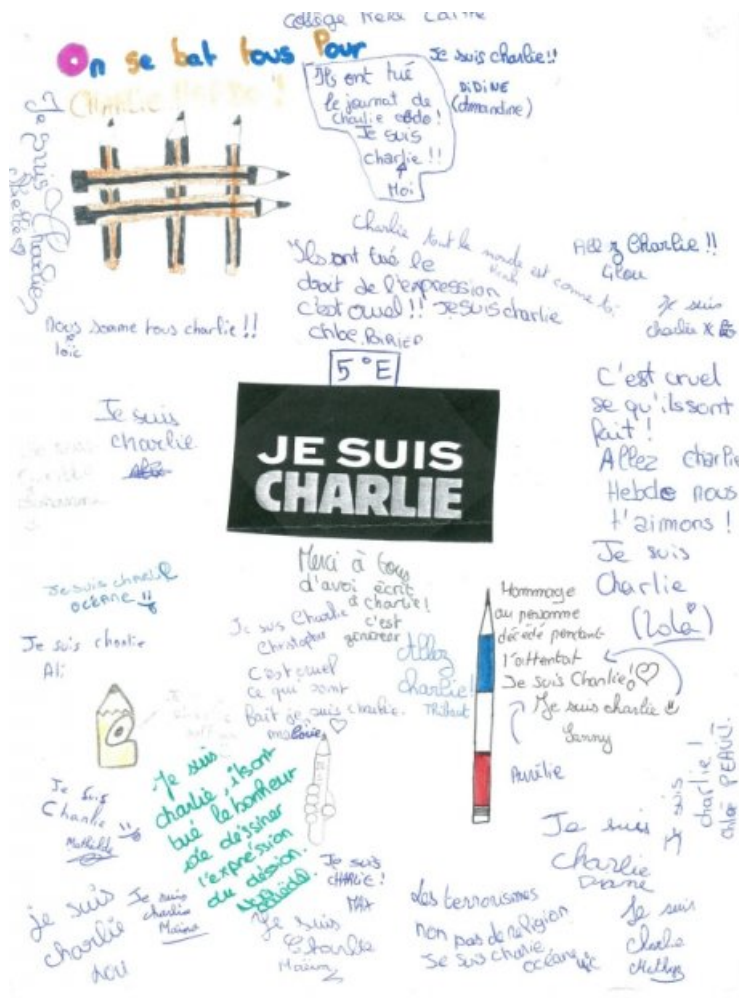 Collège René
On se bat tous Pour
CHARLIE HEBDO !
Je suis charlie!!
DiDiNE
(dmandine)
Ils ont tué
le journal de
Charlie ebdo!
Je suis
charlie !!
Moi
Je suis Charlie
Charlie tout le monde est comme toi
Ils ont tué le
droit de l'expression
c'est cruel !! JE SUIS charlie
chloe
Allez Charlie !!
Glou
Je suis
charlie
nous somme tous charlie !!
loïc
5°E
JE SUIS
CHARLIE
Je suis
charlie
C'est cruel
se qu'ils sont
fait !
Allez charlie
Hebdo nous
t'aimons !
Je suis
Charlie
(Lola)
Je suis charlie
OCÉANE
Je suis charlie
Ali
Merci à tous
d'avoi écrit
à charlie!
c'est
genereer
Je suis Charlie
Christopher
C'est cruel
ce qui sont
fait je suis charlie.
Allez
charlie!
Thibaut
Hommage
au personne
décédé pendant
l'attentat
Je suis Charlie!
Je suis charlie
Lanny
Aurélie
Je suis
charlie !
chloé PEAU
Je suis
Charlie
Mathilde
Je suis
charlie, ils ont
tué le bonheur
de déssiner
l'expréssion
du déssion.
Je suis
CHARLIE !
MAX
Je suis
charlie
Diane
je suis
charlie
LOU
Je suis
charlie
Maina
Je suis
Charlie
Les terrorismes
non pas de religion
Je suis charlie
océane
Je suis
Charlie
Mathys